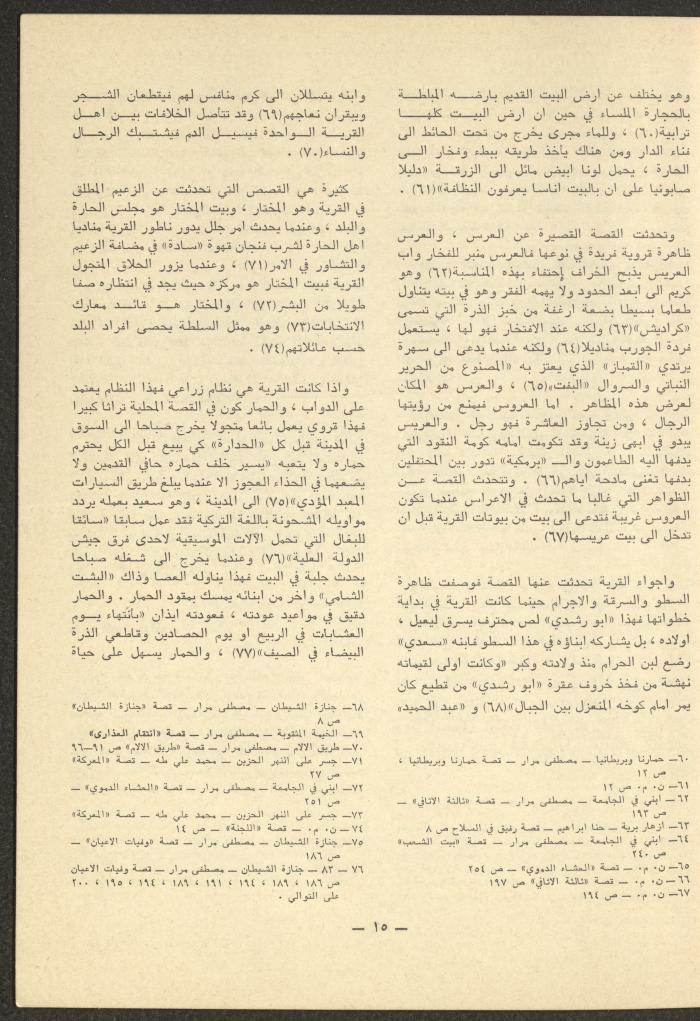 وهو يختلف عن ارض البيت القديم بارضـــه المبلطــة
بالحجارة الملساء في حين ان ارض البيـــت كلهـــا
ترابية(٦٠) ، وللماء مجرى يخرج من تحت الحائط الى
فناء الدار ومن هناك يأخذ طريقه ببطء وفخار الـــى
الحارة ، يحمل لونا ابيض مائل الى الزرقـــة «دليلا
صابونيا على ان بالبيت اناسا يعرفون النظافة»(٦١) .
وتحدثت القصة القصيرة عن العرس ، والعرس
ظاهرة قروية فريدة في نوعها فالعرس منبر للفخار واب
العريس يذبح الخراف إحتفاء بهذه المناسبة(٦٢) وهو
كريم الى ابعد الحدود ولا يهمه الفقر وهو في بيته يتناول
طعاما بسيطا بضعة ارغفة من خبز الذرة التي تسمى
«كراديش»(٦٣) ولكنه عند الافتخار فهو لها ، يستعمل
فردة الجورب منادیلا(٦٤) ولكنه عندما يدعى الى سهرة
يرتدي «القمباز» الذي يعتز به «المصنوع من الحرير
النباتي والسروال «البفت»(٦٥) ، والعرس هو المكان
لعرض هذه المظاهر . اما العروس فيمنع من رؤيتها
الرجال ، ومن تجاوز العاشرة فهو رجل . والعريس
يبدو في ابهى زينة وقد تكومت امامه كومة النقود التي
يدفها اليه الطاعمون والـــ «برمكية» تدور بين المحتفلين
بدفها تغنى مادحة اياهم(٦٦) . وتتحدث القصة عـــن
الظواهر التي غالبا ما تحدث في الاعراس عندما تكون
العروس غريبة فتدعى الى بيت من بيوتات القرية قبل ان
تدخل الى بيت عريسها(٦٧) .
واجواء القرية تحدثت عنها القصة فوصفت ظاهرة
السطو والسرقة والاجرام حينما كانت القرية في بداية
خطواتها فهذا «ابو رشدي» لص محترف يسرق ليعيل ،
اولاده ، بل يشاركه ابناؤه في هذا السطو فابنه «سعدي»
رضع لبن الحرام منذ ولادته وكبر «وكانت اولى لقيماته
نهشة من فخذ خروف عقرة «ابو رشدي» من قطيع كان
يمر امام كوخه المنعزل بين الجبال»(٦٨) و «عبد الحميد»
٦٠ــ حمارنا وبريطانيا ــ مصطفى مرار ــ قصة حمارنا وبريطانيا ،
ص ١٢
٦١ــ ن. م. ص ١٢
٦٢ــ ابني في الجامعة ــ مصطفى مرار ــ قصة «ثالثة الاثافي» ــ
ص ١٩٣
٦٣ــ ازهار برية ــ حنا ابراهيم ــ قصة رفيق في السلاح ص ٨
٦٤ــ ابني في الجامعة ــ مصطفى مرار ــ قصة «بيت الشعب»
ص ٢٤٠
٦٥ــ ن. م. ــ قصة «العشاء الدموي» ــ ص ٢٥٤
٦٦ــ ن. م. ــ قصة «ثالثة الاثافي» ص ١٩٧
٦٧ــ ن. م. ــ ص ١٩٤
وابنه يتسللان الى كرم منافس لهم فيقطعان الشـــجر
ويبقران نعاجهم(٦٩) وقد تتأصل الخلافات بيـــن اهـــل
القريـــة الـــواحدة فيسيـــل الدم فيشتـــبك الرجـــال
والنساء(٧٠) .
كثيرة هي القصص التي تحدثت عن الزعيم المطلق
في القرية وهو المختار ، وبيت المختار هو مجلس الحارة
والبلد ، وعندما يحدث امر جلل يدور ناطور القرية مناديا
اهل الحارة لشرب فنجان قهوة «سادة» في مضافة الزعيم
والتشاور في الامر(٧١) ، وعندما يزور الحلاق المتجول
القرية فبيت المختار هو مركزه حيث يجد في انتظاره صفا
طويلا من البشر(٧٢) ، والمختار هـــو قائـــد معارك
الانتخابات(٧٣) وهو ممثل السلطة يحصى افراد البلد
حسب عائلاتهم(٧٤) .
واذا كانت القرية هي نظام زراعي فهذا النظام يعتمد
على الدواب ، والحمار كون في القصة المحلية تراثا كبيرا
فهذا قروي يعمل بائعا متجولا يخرج صباحا الى السوق
في المدينة قبل كل «الحدارة» كي يبيع قبل الكل يحترم
حماره ولا يتعبه «يسير خلف حماره حافي القدمين ولا
يضعهما في الحذاء العجوز الا عندما يبلغ طريق السيارات
المعبد المؤدي»(٧٥) الى المدينة ، وهو سعيد بعمله يردد
مواويله المشحونة باللغة التركية فقد عمل سابقا «سائقا
للبغال التي تحمل الآلات الموسيقية لاحدى فرق جيش
الدولة العلية»(٧٦) وعندما يخرج الى شغله صباحا
يحدث جلبة في البيت فهذا يناوله العصا وذاك «البشت
الشامي» واخر من ابنائه يمسك بمقود الحمار . والحمار
دقيق في مواعيد عودته ، فعودته ايذان «بأنتهاء يـــوم
العشابات في الربيع او يوم الحصادين وقاطعي الذرة
البيضاء في الصيف»(٧٧) ، والحمار يسهل على حياة
٦٨ــ جنازة الشيطان ــ مصطفى مرار ــ قصة «جنازة الشيطان»
ص ٨
٦٩ــ الخيمة المثقوبة ــ مصطفى مرار ــ قصة «انتقام العذارى»
٧٠ــ طريق الالام ــ مصطفى مرار ــ قصة «طريق الالام» ص ٩١ــ٩٦
٧١ــ جسر على النهر الحزين ــ محمد علي طه ــ قصة «المعركة»
ص ٢٧
٧٢ــ ابني في الجامعة ــ مصطفى مرار ــ قصة «العشاء الدموي» ــ
ص ٢٥١
٧٣ــ جسر على النهر الحزين ــ محمد علي طه ــ قصة «المعركة»
٧٤ــ ن. م. ــ قصة «اللجنة» ــ ص ١٤
٧٥ــ جنازة الشيطان ــ مصطفى مرار ــ قصة «وفيات الاعيان» ــ
ص ١٨٦
٧٦ ــ ٨٣ ــ جنازة الشيطان ــ مصطفى مرار ــ قصة وفيات الاعيان
ص ١٨٦ ، ١٨٩ ، ١٩٤ ، ١٩١ ، ١٨٩ ، ١٩٤ ، ١٩٥ ، ٢٠٠
على التوالي .
ــ ١٥ ــ